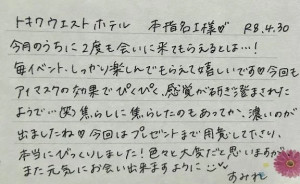 トキワウエストホテル 本指名I様♡ R8.4.30
今月のうちに2度も会いに来てもらえるとは…!
毎イベント、しっかり楽しんでもらえて嬉しいです♡今回も
アイマスクの効果でぴくぴく、感覚が研ぎ澄まされた
ようで…(笑)焦らしに焦らしたのもあってか、濃いのが
出ましたね♡今回はプレゼントまで用意して下さり、
本当にびっくりしました!色々と大変だと思いますが
また元気にお会い出来ますように
すみれ